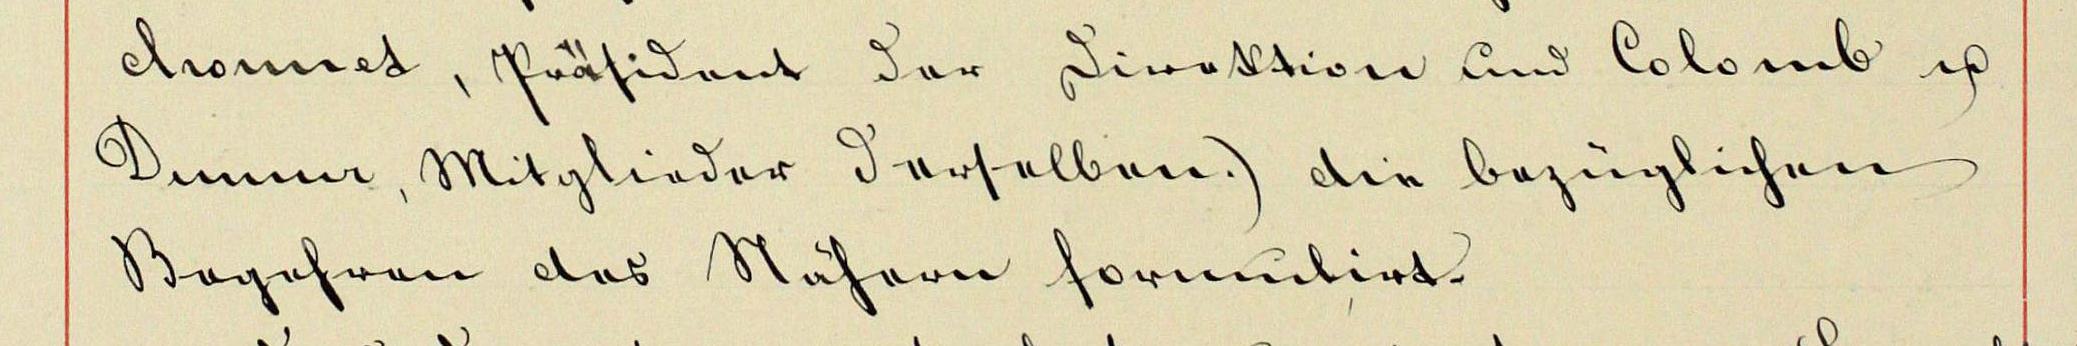 chonnet, Präsident der Direktion und Colomb u
Dumur, Mitglieder derselben.) die bezüglichen
Begehren des Nähern formulirt.